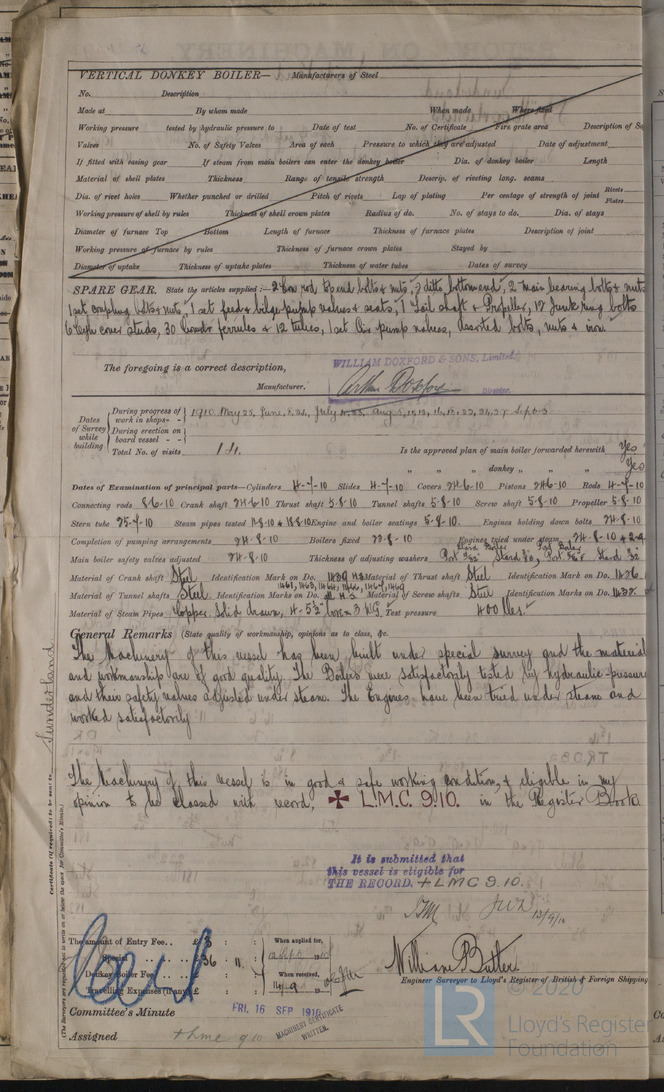 VERTICAL DONKEY BOILER— Manufacturers of Steel
No. Description
Made at By whom made When made Where fixed
Working pressure tested by hydraulic pressure to Date of test No. of Certificate Fire grate area Description of
Valves No. of Safety Valves Area of each Pressure to which they are adjusted Date of adjustment
If fitted with easing gear If steam from main boilers can enter the donkey boiler Dia. of donkey boiler Length
Material of shell plates Thickness Range of tensile strength Descrip. of riveting long. seams
Dia. of rivet holes Whether punched or drilled Pitch of rivets Lap of plating Per centage of strength of joint Rivets Plates
Working pressure of shell by rules Thickness of shell crown plates Radius of do. No. of stays to do. Dia. of stays
Diameter of furnace Top Bottom Length of furnace Thickness of furnace plates Description of joint
Working pressure of furnace by rules Thickness of furnace crown plates Stayed by
Diameter of uptake Thickness of uptake plates Thickness of water tubes Dates of survey
SPARE GEAR. State the articles supplied:— 2 Con rod top end bolts & nuts, 2 ditto bottom end, 2 main bearing bolts & nuts
1 set coupling bolts & nuts, 1 set feed & bilge pump valves & seats, 1 Tail shaft & Propeller, 12 Junk ring bolts
6 cover studs, 30 Condr ferrules & 12 tubes, 1 set Air pump valves, assorted bolts, nuts & iron
The foregoing is a correct description,
WILLIAM DOXFORD & SONS, Limited.
Manufacturer. Arthur Doxford Director.
Dates of Survey while building
During progress of work in shops - - 1910 May 25, June
During erection on board vessel - -
Total No. of visits 14.
Is the approved plan of main boiler forwarded herewith Yes
" " donkey " " " Yes
Dates of Examination of principal parts—Cylinders 4-7-10 Slides 4-7-10 Covers 24-6-10 Pistons 24-6-10 Rods 4-7-10
Connecting rods 8-6-10 Crank shaft 24-6-10 Thrust shaft 5-8-10 Tunnel shafts 5-8-10 Screw shaft 5-8-10 Propeller 5-8-10
Stern tube 25-7-10 Steam pipes tested Engine and boiler seatings 5-8-10. Engines holding down bolts 24-8-10
Completion of pumping arrangements 24-8-10 Boilers fixed 22-8-10 Engines tried under steam 24-8-10
Main boiler safety valves adjusted 24-8-10 Thickness of adjusting washers
Material of Crank shaft Steel Identification Mark on Do. Material of Thrust shaft Steel Identification Mark on Do.
Material of Tunnel shafts Steel Identification Marks on Do. Material of Screw shafts Steel Identification Marks on Do.
Material of Steam Pipes Copper Solid drawn, Test pressure 400 lbs
General Remarks (State quality of workmanship, opinions as to class, &c.
The Machinery of this vessel has been built under special survey and the material
and workmanship are of good quality. The Boilers were satisfactorily tested by hydraulic pressure
and their safety valves adjusted under steam. The Engines have been tried under steam and
worked satisfactorily
The Machinery of this vessel is in good & safe working condition, & eligible in my
opinion to be classed with record, ✠ L.M.C. 9.10. in the Register Book
It is submitted that
this vessel is eligible for
THE RECORD. + LMC 9.10.
13/9/10
Certificate (if required) to be sent to Sunderland
(The Surveyors are requested not to write on or below the space for Committee's Minute.)
The amount of Entry Fee . . £ 3 : : When applied for,
Special £ 36 : 11 :
Donkey Boiler Fee £ : : When received,
Travelling Expenses (if any) £ : :
William Butler
Engineer Surveyor to Lloyd's Register of British & Foreign Shipping
Committee's Minute FRI, 16 SEP 1910
MACHINERY CERTIFICATE WRITTEN.
Assigned + Lmc 9.10
LR © 2020
Lloyd's Register
Foundation